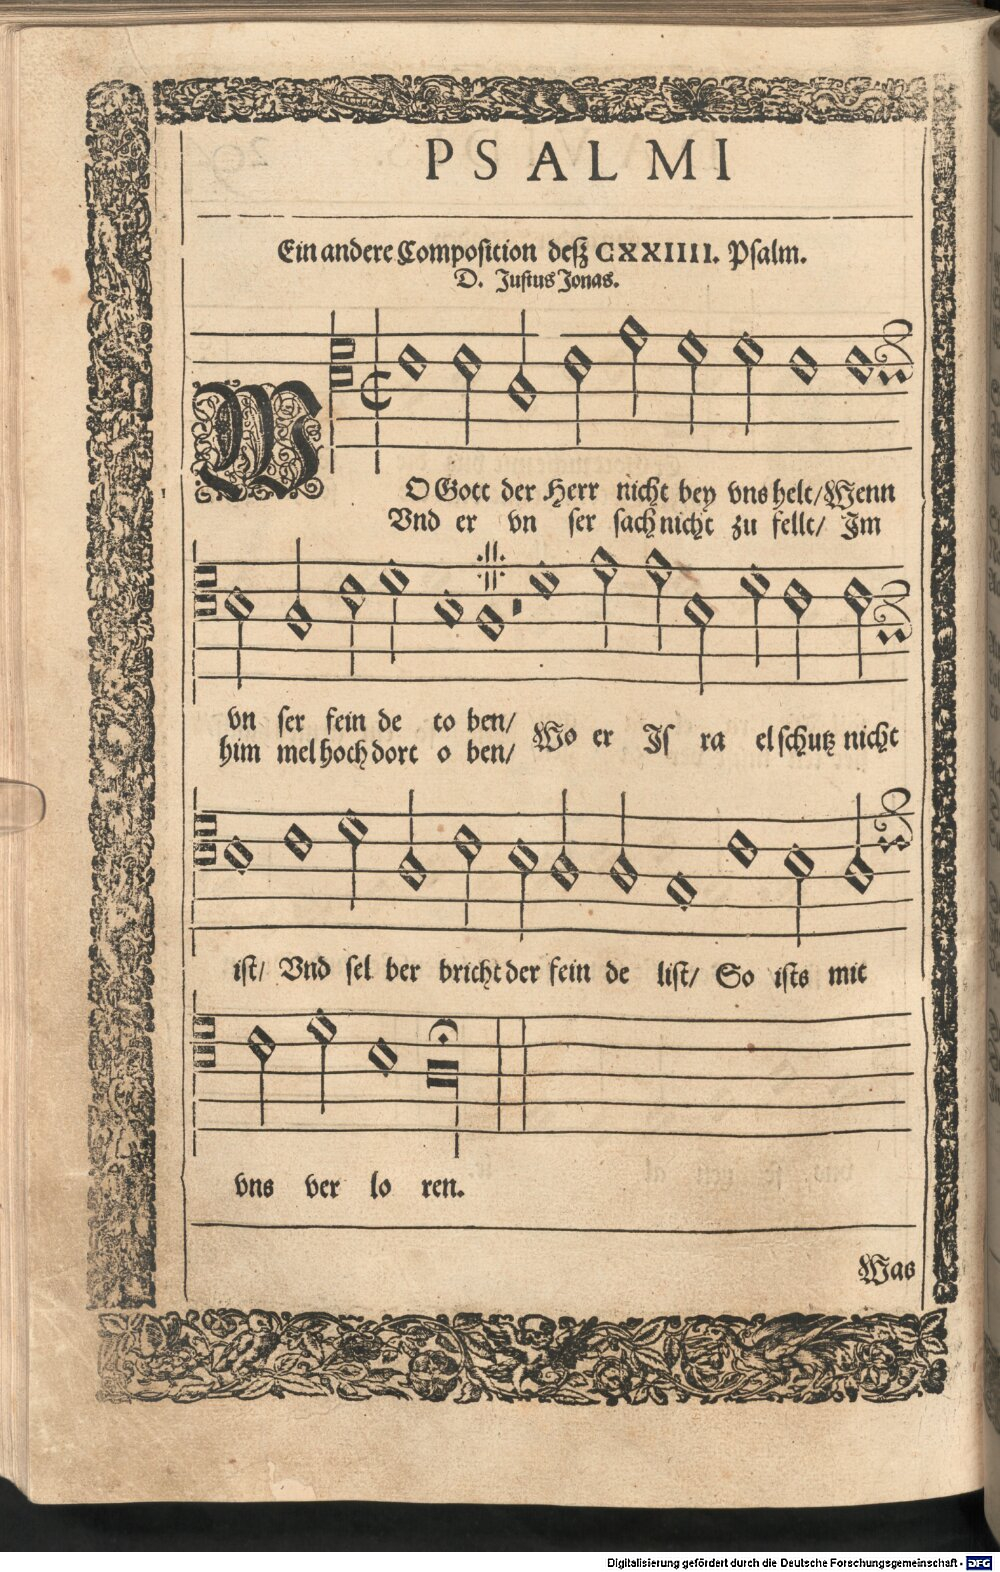 PSALMI
Ein andere Composition deß CXXIIII. Psalm.
D. Justus Jonas.
WO Gott der Herr nicht bey vns helt/ Wenn
Vnd er vn ser sach nicht zu fellt/ Im
vn ser fein de to ben/
him mel hoch dort o ben/
Wo er Is ra el schutz nicht
ist/ Vnd sel ber bricht der fein de list/ So ists mit
vns ver lo ren.
Was
Digitalisierung gefördert durch die Deutsche Forschungsgemeinschaft - DFG